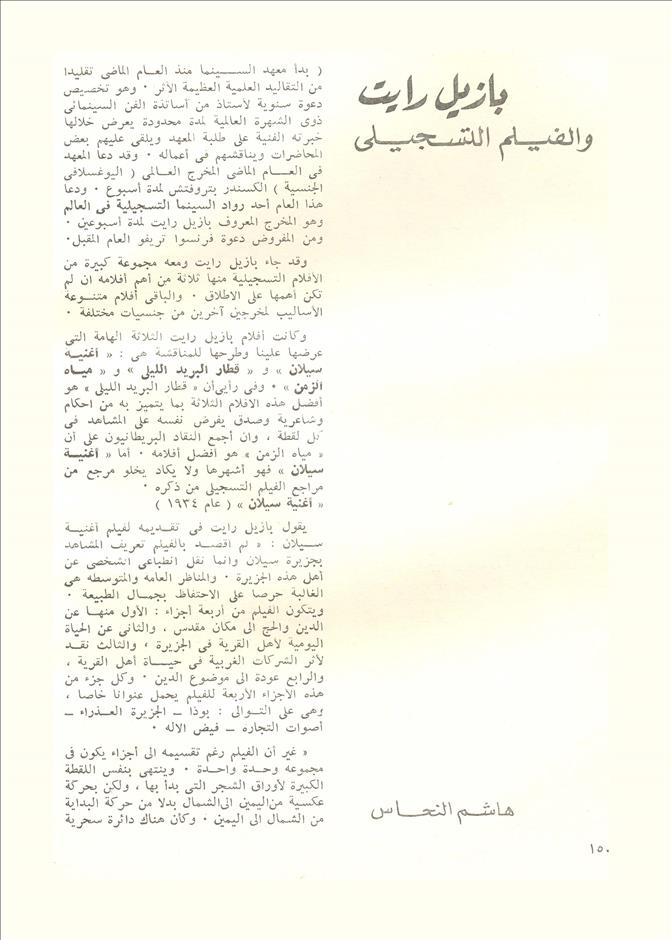 بازيل رايت
والفيلم التسجيلى
( بدأ معهد السينما منذ العام الماضى تقليدا
من التقاليد العلمية العظيمة الأثر ٠ وهو تخصيص
دعوة سنوية لأستاذ من أساتذة الفن السينمائى
ذوى الشهرة العالمية لمدة محدودة يعرض خلالها
خبرته الفنية على طلبة المعهد ويلقى عليهم بعض
المحاضرات ويناقشهم فى أعماله ٠ وقد دعا المعهد
فى العام الماضى المخرج العالمى ( اليوغسلافى
الجنسية ) الكسندر بتروفتش لمدة أسبوع ٠ ودعا
هذا العام أحد رواد السينما التسجيلية فى العالم
وهو المخرج المعروف بازيل رايت لمدة أسبوعين ٠
ومن المفروض دعوة فرنسوا تريفو العام المقبل٠
وقد جاء بازيل رايت ومعه مجموعة كبيرة من
الأفلام التسجيلية منها ثلاثة من أهم أفلامه ان لم
تكن أهمها على الاطلاق ٠ والباقى أفلام متنوعة
الأساليب لمخرجين آخرين من جنسيات مختلفة ٠
وكانت أفلام بازيل رايت الثلاثة الهامة التى
عرضها علينا وطرحها للمناقشة هى : « أغنية
سيلان » و « قطار البريد الليلى » و « مياه
الزمن » ٠ وفى رأيى أن « قطار البريد الليلى » هو
أفضل هذه الافلام الثلاثة بما يتميز به من احكام
وشاعرية وصدق يفرض نفسه على المشاهد فى
كل لقطة ، وان أجمع النقاد البريطانيون على أن
« مياه الزمن » هو أفضل أفلامه ٠ أما « أغنية
سيلان » فهو أشهرها ولا يكاد يخلو مرجع من
مراجع الفيلم التسجيلى من ذكره ٠
« أغنية سيلان » ( عام ١٩٣٤ )
يقول بازيل رايت فى تقديمه لفيلم أغنية
سيلان : « لم اقصد بالفيلم تعريف المشاهد
بجزيرة سيلان وانما نقل انطباعى الشخصى عن
أهل هذه الجزيرة ٠ والمناظر العامه والمتوسطه هى
الغالبة حرصا على الاحتفاظ بجمال الطبيعة ٠
ويتكون الفيلم من أربعة أجزاء : الأول منها عن
الدين والحج الى مكان مقدس ، والثانى عن الحياة
اليومية لأهل القرية فى الجزيرة ، والثالث نقد
لأثر الشركات الغربية فى حياة أهل القرية ،
والرابع عودة الى موضوع الدين ٠ وكل جزء من
هذه الاجزاء الأربعة للفيلم يحمل عنوانا خاصا ،
وهى على التوالى : بوذا – الجزيرة العذراء –
أصوات التجاره – فيض الاله ٠
« غير أن الفيلم رغم تقسيمه الى أجزاء يكون فى
مجموعه وحدة واحدة ٠ وينتهى بنفس اللقطة
الكبيرة لأوراق الشجر التى بدأ بها ، ولكن بحركة
عكسية من اليمين الى الشمال بدلا من حركة البداية
من الشمال الى اليمين ٠ وكأن هناك دائرة سحرية
هاشم النحاس
١٥٠